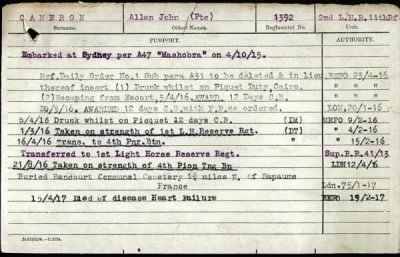 CAMERON Allan John (Pte) 1392 2nd L.H.R. 11thRf
Surname. Other Names. Regimental No. Unit.
PURPORT. AUTHORITY.
Embarked at Sydney per A47 "Mashobra" on 4/10/15.
Ref.Daily Order No.1 Sub para A31 to be deleted & in lieu REPO 23/4-16
thereof insert (1) Drunk whilst on Piquet Duty,Cairo. " " "
(2)Escaping from Escort,5/4/16.AWARD. 12 Days C.B. " " "
20/5/16. AWARD 12 days C.B. with F.P. as ordered. LON.20/1-16
5/4/16 Drunk whilst on Piquet 12 days C.B. (1M) MEFO 9/2-16
1/3/16 Taken on strength of 1st L.H.Reserve Rgt. (D7) " 4/2-16
16/4/16 Trans. to 4th Png.Btn. " 15/2-16
Transferred to 1st Light Horse Reserve Regt. Sup.B.R.41/13
21/8/16 Taken on strength of 4th Pion Tng Bn LDN12/4-16
Buried Bancourt Communal Cemetery 1¼ miles E. of Bapaume
France Ldn.75/1-17
15/4/17 Died of disease Heart Failure REPO 19/2-17